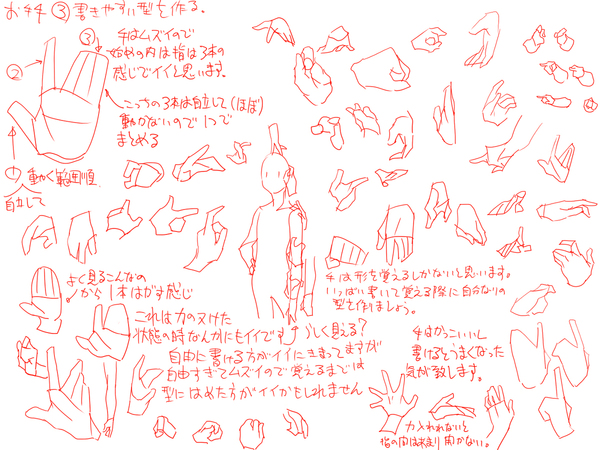 お手手 ③ 書きやすい型を作る。
手はムズイので
始めの内は指は3本の
感じでイイと思います。
③
②
こっちの3本は自立して(ほぼ)
動かないので1つで
まとめる
① 動く範囲順
自立して
よく見るこんなの
から1本はがす感じ
これは力のヌけた
状態の時なんかにもイイです
らしく見える?
自由に書ける方がイイにきまってますが
自由すぎてムズイので覚えるまでは
型にはめた方がイイかもしれません
手は形を覚えるしかないと思います。
いっぱい書いて覚える際に自分なりの
型を作りましょう。
手はかっこいいし
書けるとうまくなった
気が致します。
力入れないと
指の内はあまり開かない。